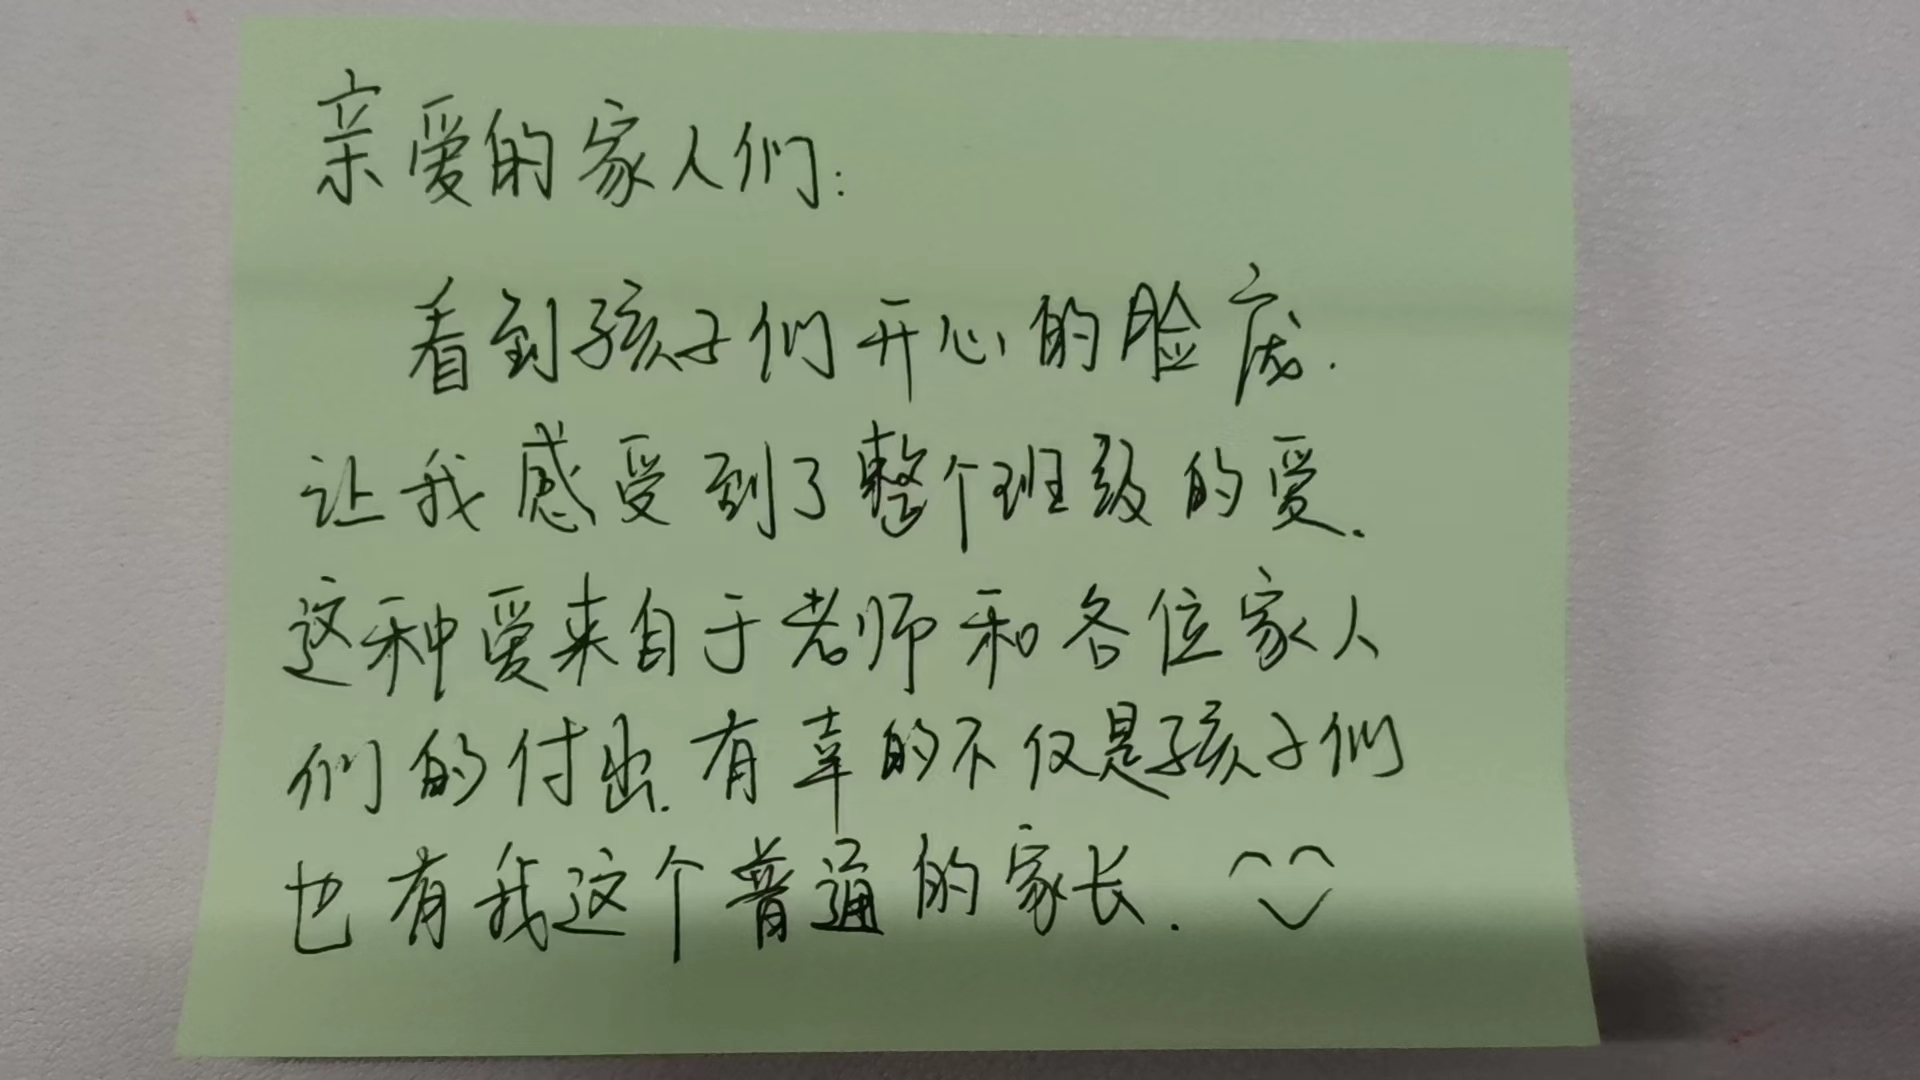 亲爱的家人们:
看到孩子们开心的脸庞.
让我感受到了整个班级的爱.
这种爱来自于老师和各位家人
们的付出.有幸的不仅是孩子们
也有我这个普通的家长.